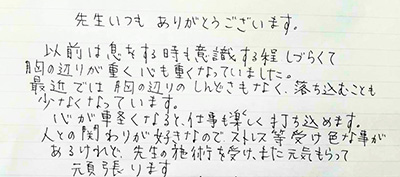 先生いつも ありがとうございます。
以前は息をする時も意識する程 しづらくて
胸の辺りが重く心も重くなっていました。
最近では胸の辺りのしんどさもなく、落ち込むことも
少なくなっています。
心が軽くなると、仕事も楽しく打ち込めます。
人との関わりが好きなので ストレス等受け色な事が
あるけれど、先生の施術を受け、また元気もらって
頑張ります